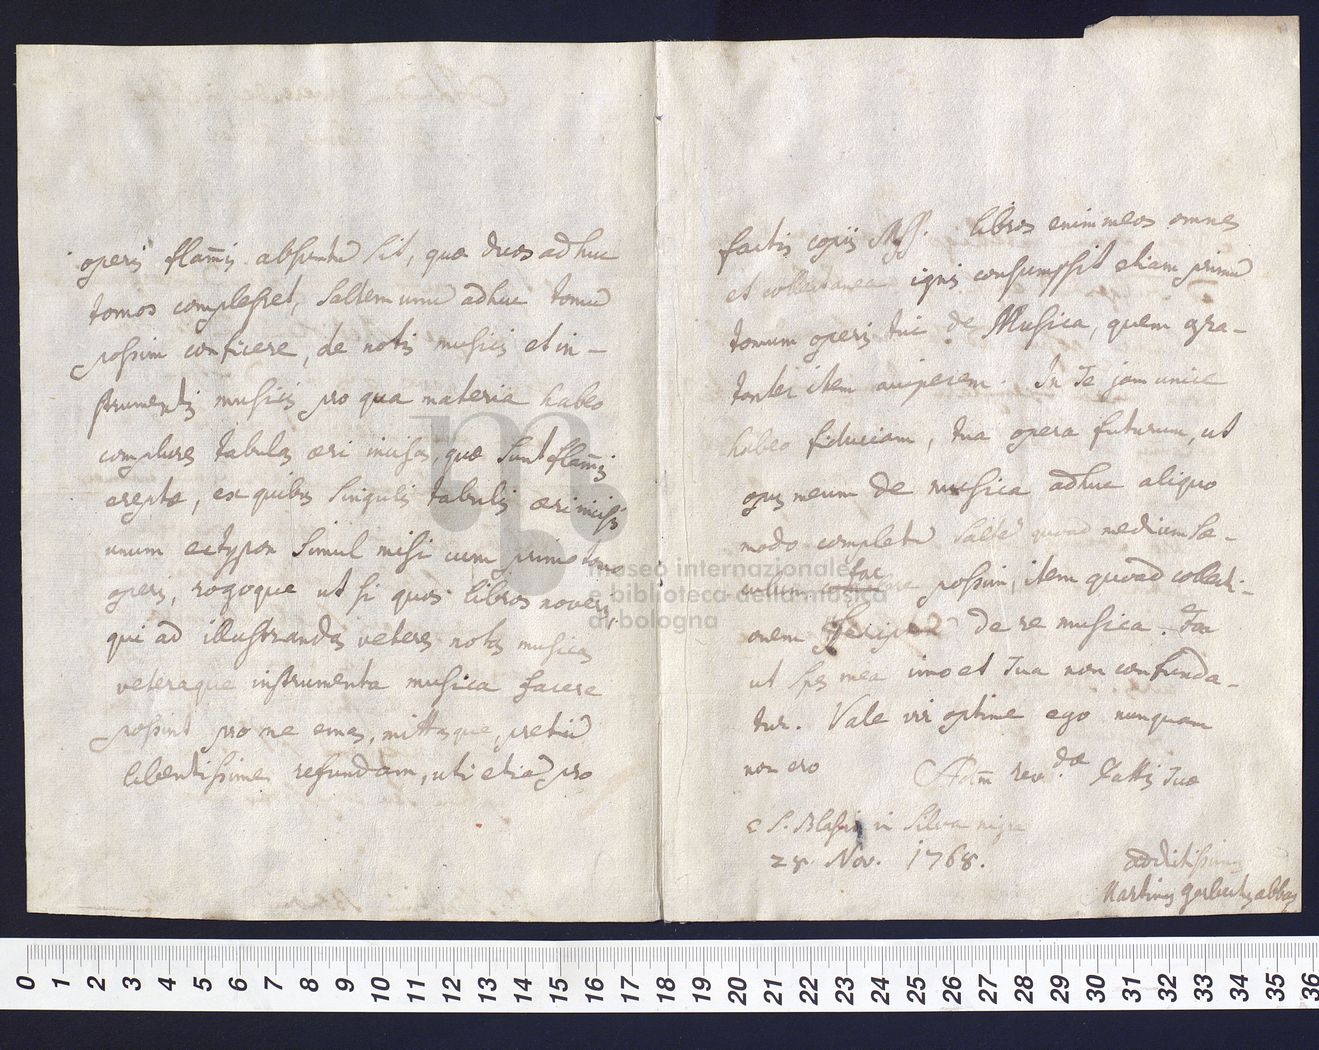 operis flam̄is absumtū sit, quæ duos adhuc
tomos complesset, saltem unū adhuc tomū
possim conficere, de notis musicis et in-
strumentis musicis pro qua materia habeo
complures tabulas æri incisas, quæ sunt flam̄is
ereptæ, ex quibus singulis tabulis æri incisis
unum ectypon simul misi cum primo tomo
operis, rogoque ut si quos libros noveris,
qui ad illustrandas veteres notas musicas
veteraque instrumenta musica facere
possint pro me emas, mittasque, pretiū
libentissime refundam, uti etiā pro
factis copiis Mss. libros enim meos omnes
et collectanea ignis consumpsit etiam primū
tomum operis tui de Musica, quem gra-
tanter item acciperem. In Te jam unice
habeo fiduciam, tua opera futurum, ut
opus meum de musica adhuc aliquo
modo completū saltē quoad medium sæ-
culum possim, item quoad collecti-
onem de re musica. Fac
ut spes mea imo et Tua non confunda-
tur. Vale vir optime ego nunquam
non ero Adm revdæ Pattis Tuæ
e S. Blasio in Silva nigra
28. Nov. 1768.
addictissimus
Martinus Gerbertus abbas
museo internazionale
e biblioteca della musica
di bologna
0 1 2 3 4 5 6 7 8 9 10 11 12 13 14 15 16 17 18 19 20 21 22 23 24 25 26 27 28 29 30 31 32 33 34 35 36